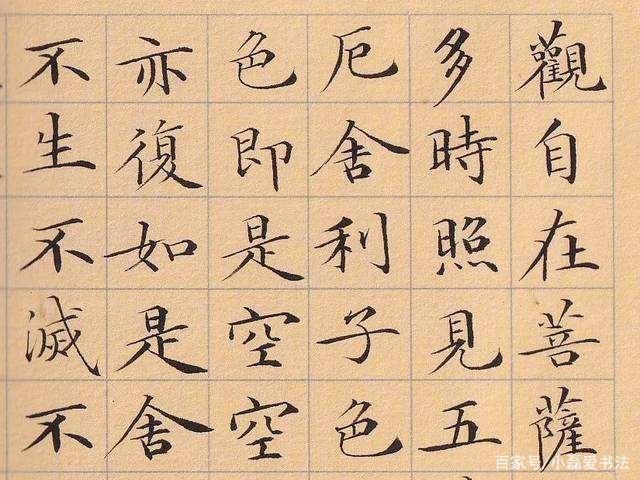 觀自在菩薩
多時照見五
厄舍利子色
色即是空空
亦復如是舍
不生不滅不
百家号/小磊爱书法